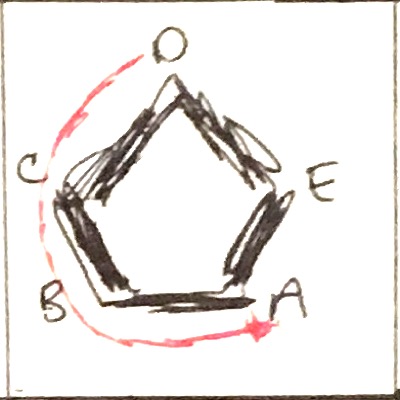 D
C
E
B
A